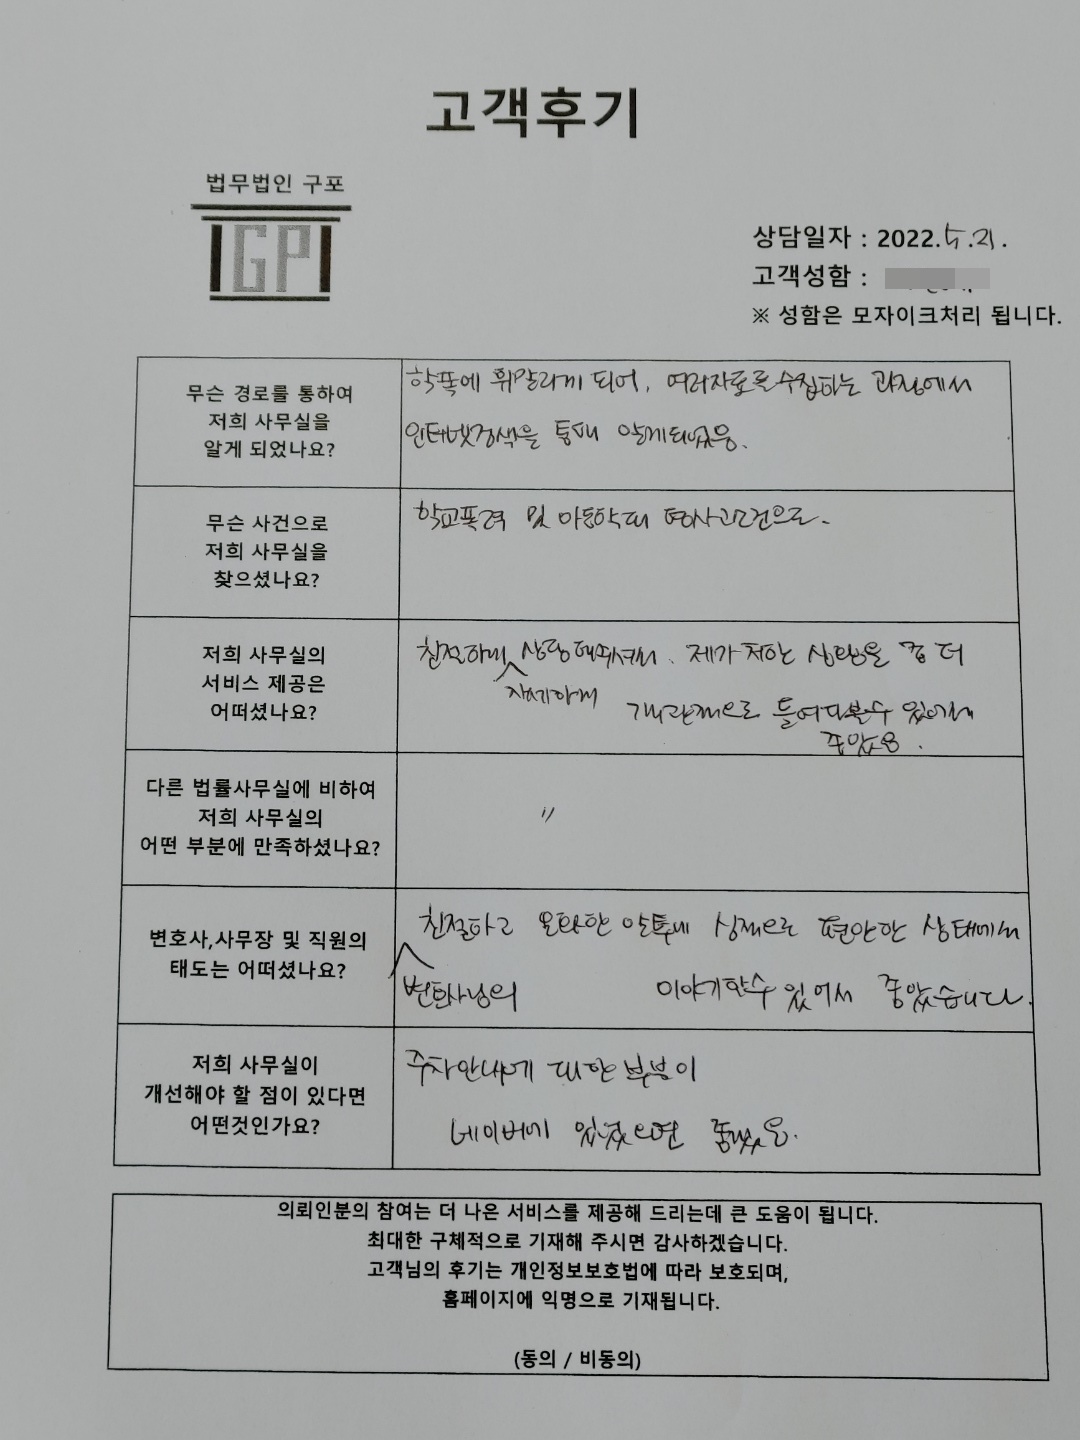 고객후기
법무법인 구포
GP
상담일자 : 2022.5.21.
고객성함 :
※ 성함은 모자이크처리 됩니다.
무슨 경로를 통하여
저희 사무실을
알게 되었나요?
학폭에 휘말리게 되어, 여러자료를 수집하는 과정에서
인터넷검색을 통해 알게되었음.
무슨 사건으로
저희 사무실을
찾으셨나요?
학교폭력 및 아동학대 형사사건으로.
저희 사무실의
서비스 제공은
어떠셨나요?
친절하게 상담해주셔서. 제가 처한 상황을 좀 더
자세하게
객관적으로 들여다볼수 있어서
좋았음.
다른 법률사무실에 비하여
저희 사무실의
어떤 부분에 만족하셨나요?
〃
변호사,사무장 및 직원의
태도는 어떠셨나요?
친절하고 온화한 말투에 심적으로 편안한 상태에서
변호사님의
이야기할수 있어서 좋았습니다.
저희 사무실이
개선해야 할 점이 있다면
어떤것인가요?
주차안내에 대한 부분이
네이버에 있었으면 좋겠음.
의뢰인분의 참여는 더 나은 서비스를 제공해 드리는데 큰 도움이 됩니다.
최대한 구체적으로 기재해 주시면 감사하겠습니다.
고객님의 후기는 개인정보보호법에 따라 보호되며,
홈페이지에 익명으로 기재됩니다.
(동의 / 비동의)